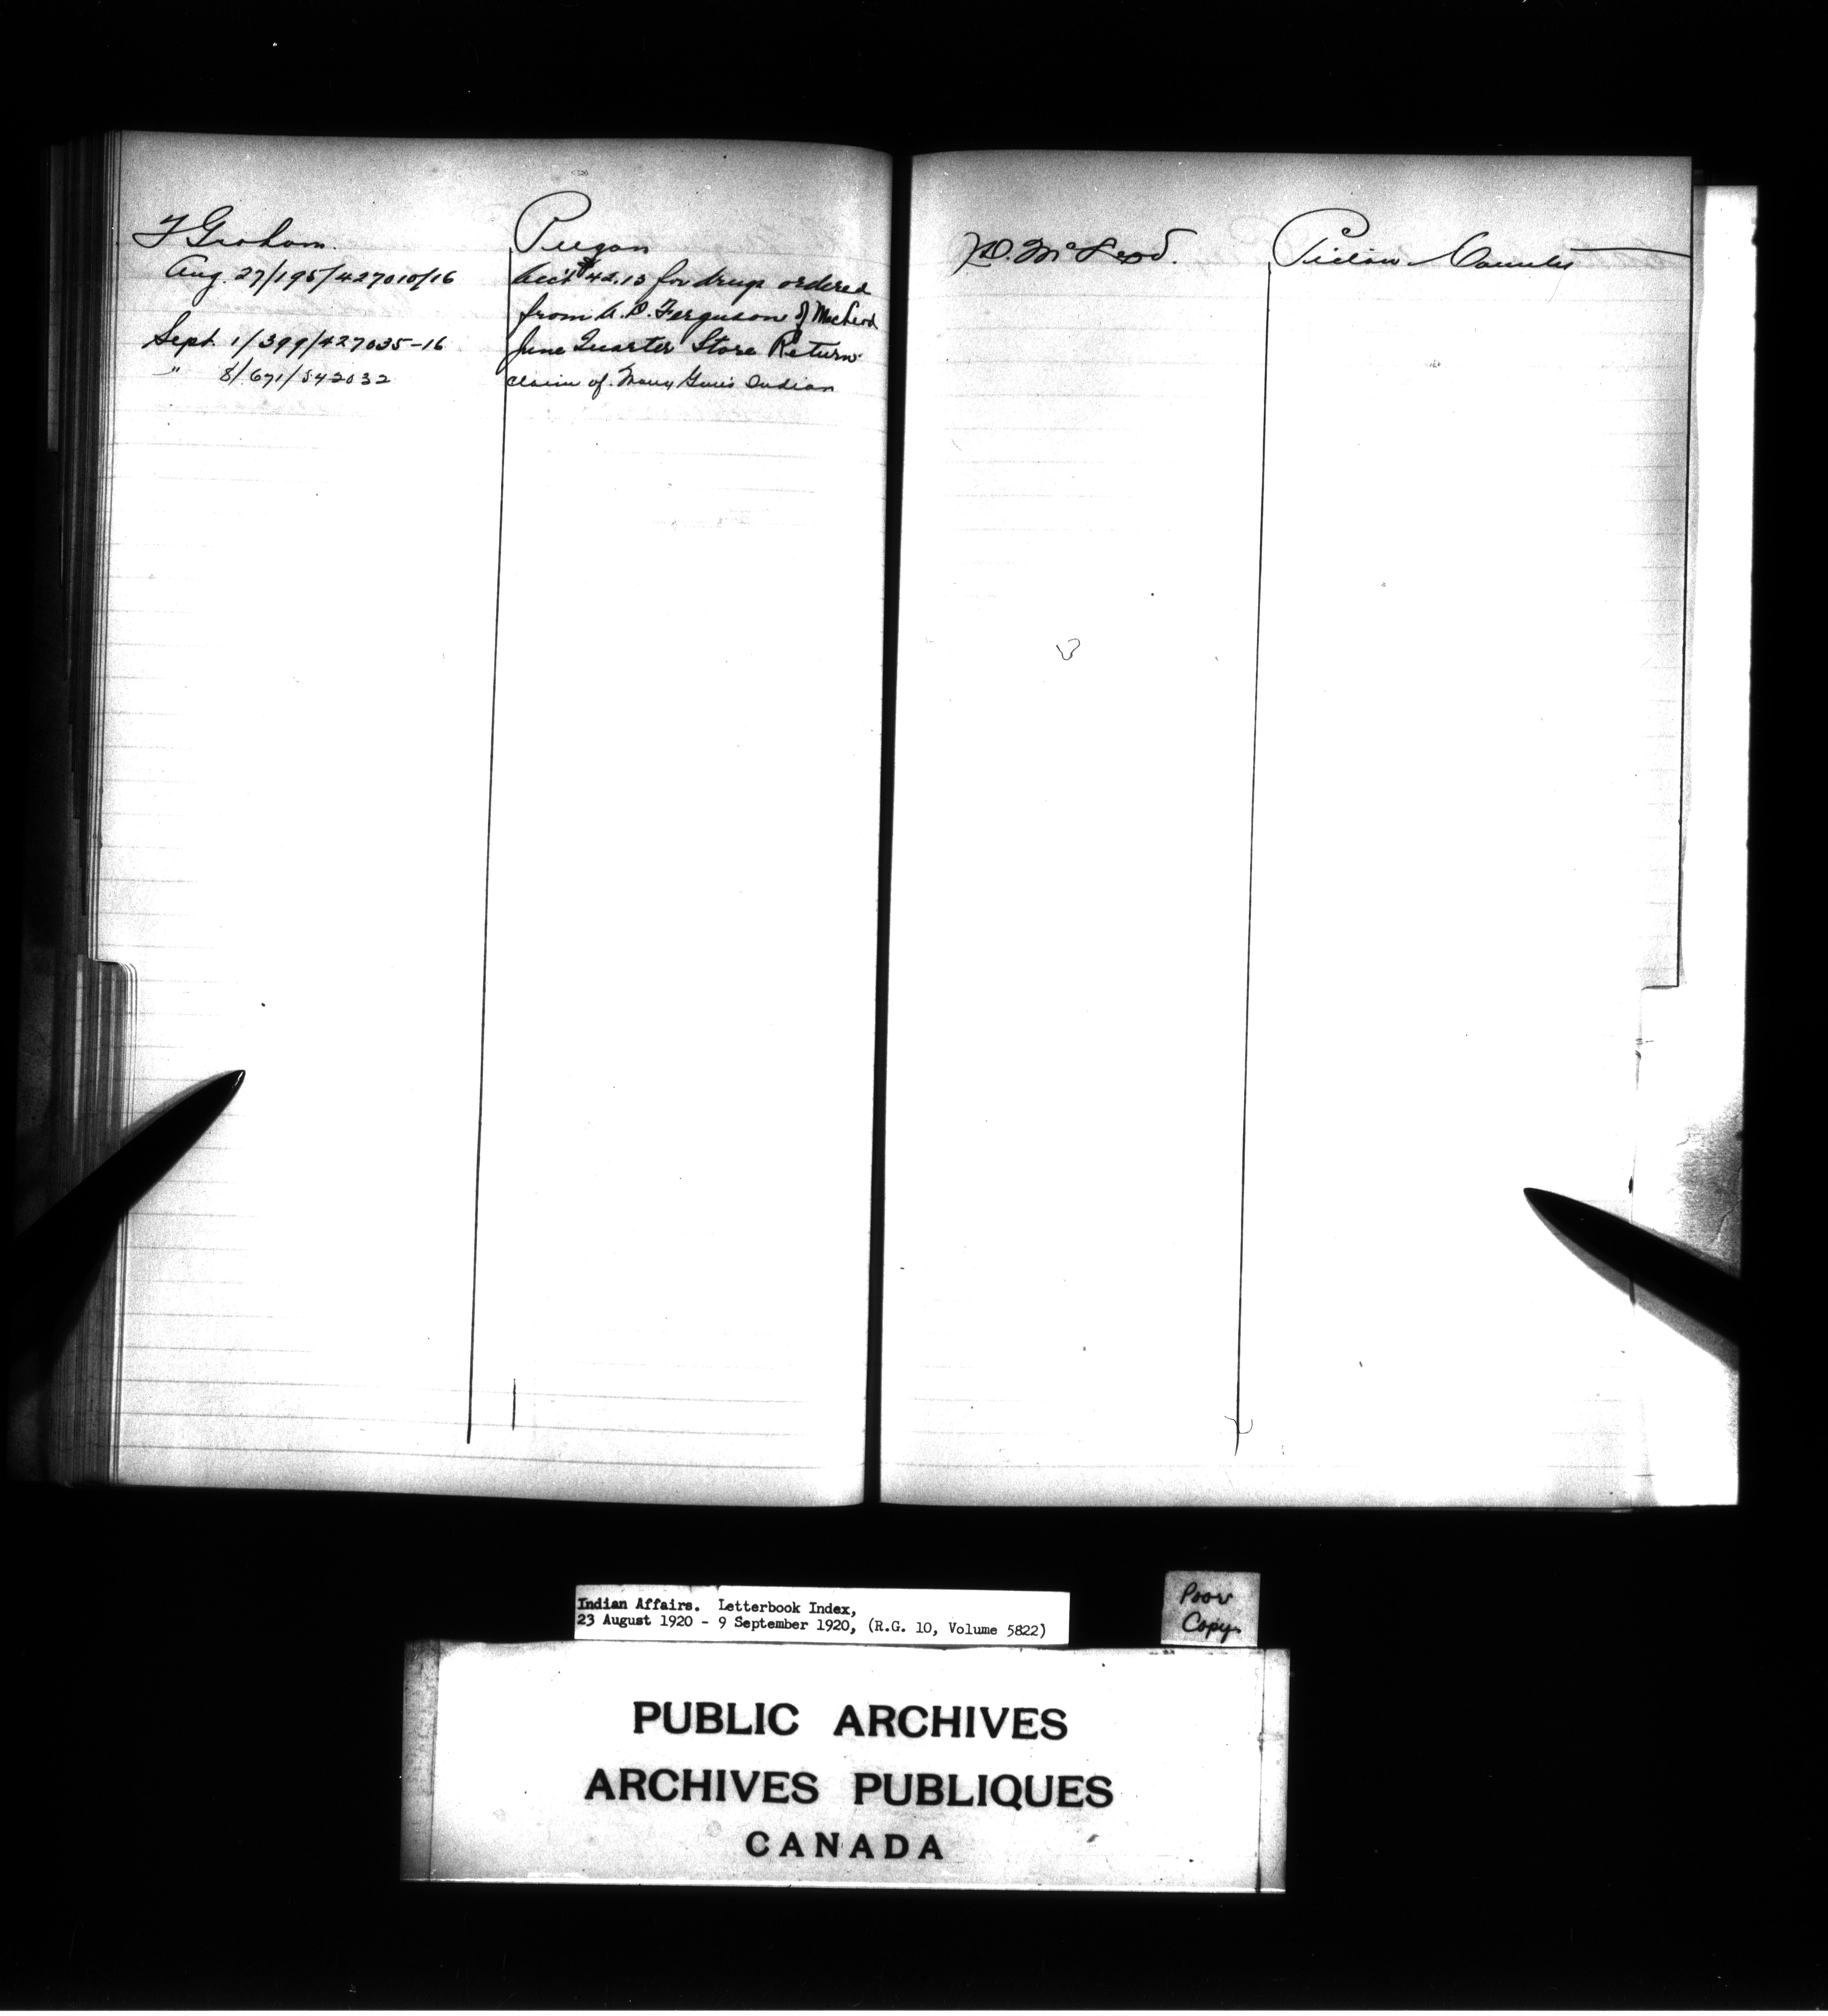 T Graham.
Peigan
Aug. 27/195/427010/16
Acc't $42.13 for drugs ordered
from A. D. Ferguson of Macleod
Sept. 1/399/427035-16
June Quarter Store Return
" 8/671/542032
claim of Many Guns Indian
McLeod.
Pictou County
Indian Affairs. Letterbook Index,
23 August 1920 - 9 September 1920, (R.G. 10, Volume 5822)
Poor
Copy.
PUBLIC ARCHIVES
ARCHIVES PUBLIQUES
CANADA